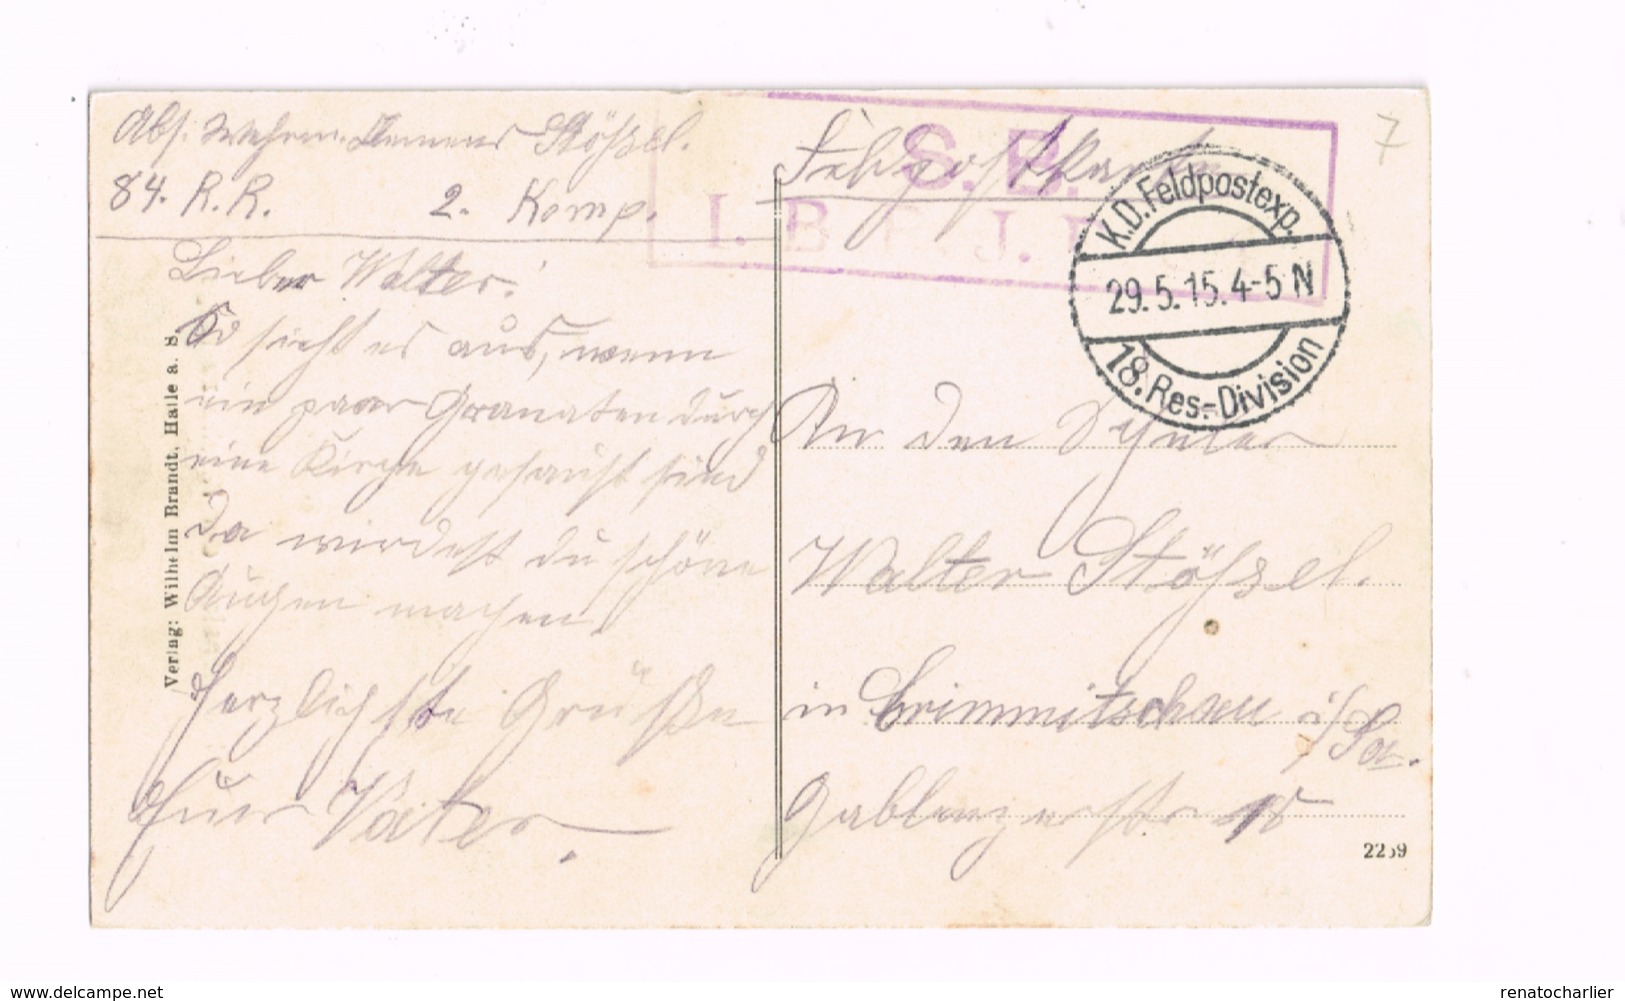 Abs. Wehrm. Clemens Stößel.
84. R.R. 2. Komp.
Feldpostkarte
S. B.
I. B J.
K.D. Feldpostexp.
29.5.15. 4-5 N
18. Res.-Division
7
Lieber Walter!
So sieht es aus, wenn
ein paar Granaten durch
eine Kirche gesaust sind
Da würdest du schöne
Augen machen.
Herzlichste Grüße
Euer Vater.
An den Schüler
Walter Stößel.
in Crimmitschau i/Sa.
Gablenzerstr
Verlag: Wilhelm Brandt, Halle a. S.
2259
delcampe.net
renatocharlier